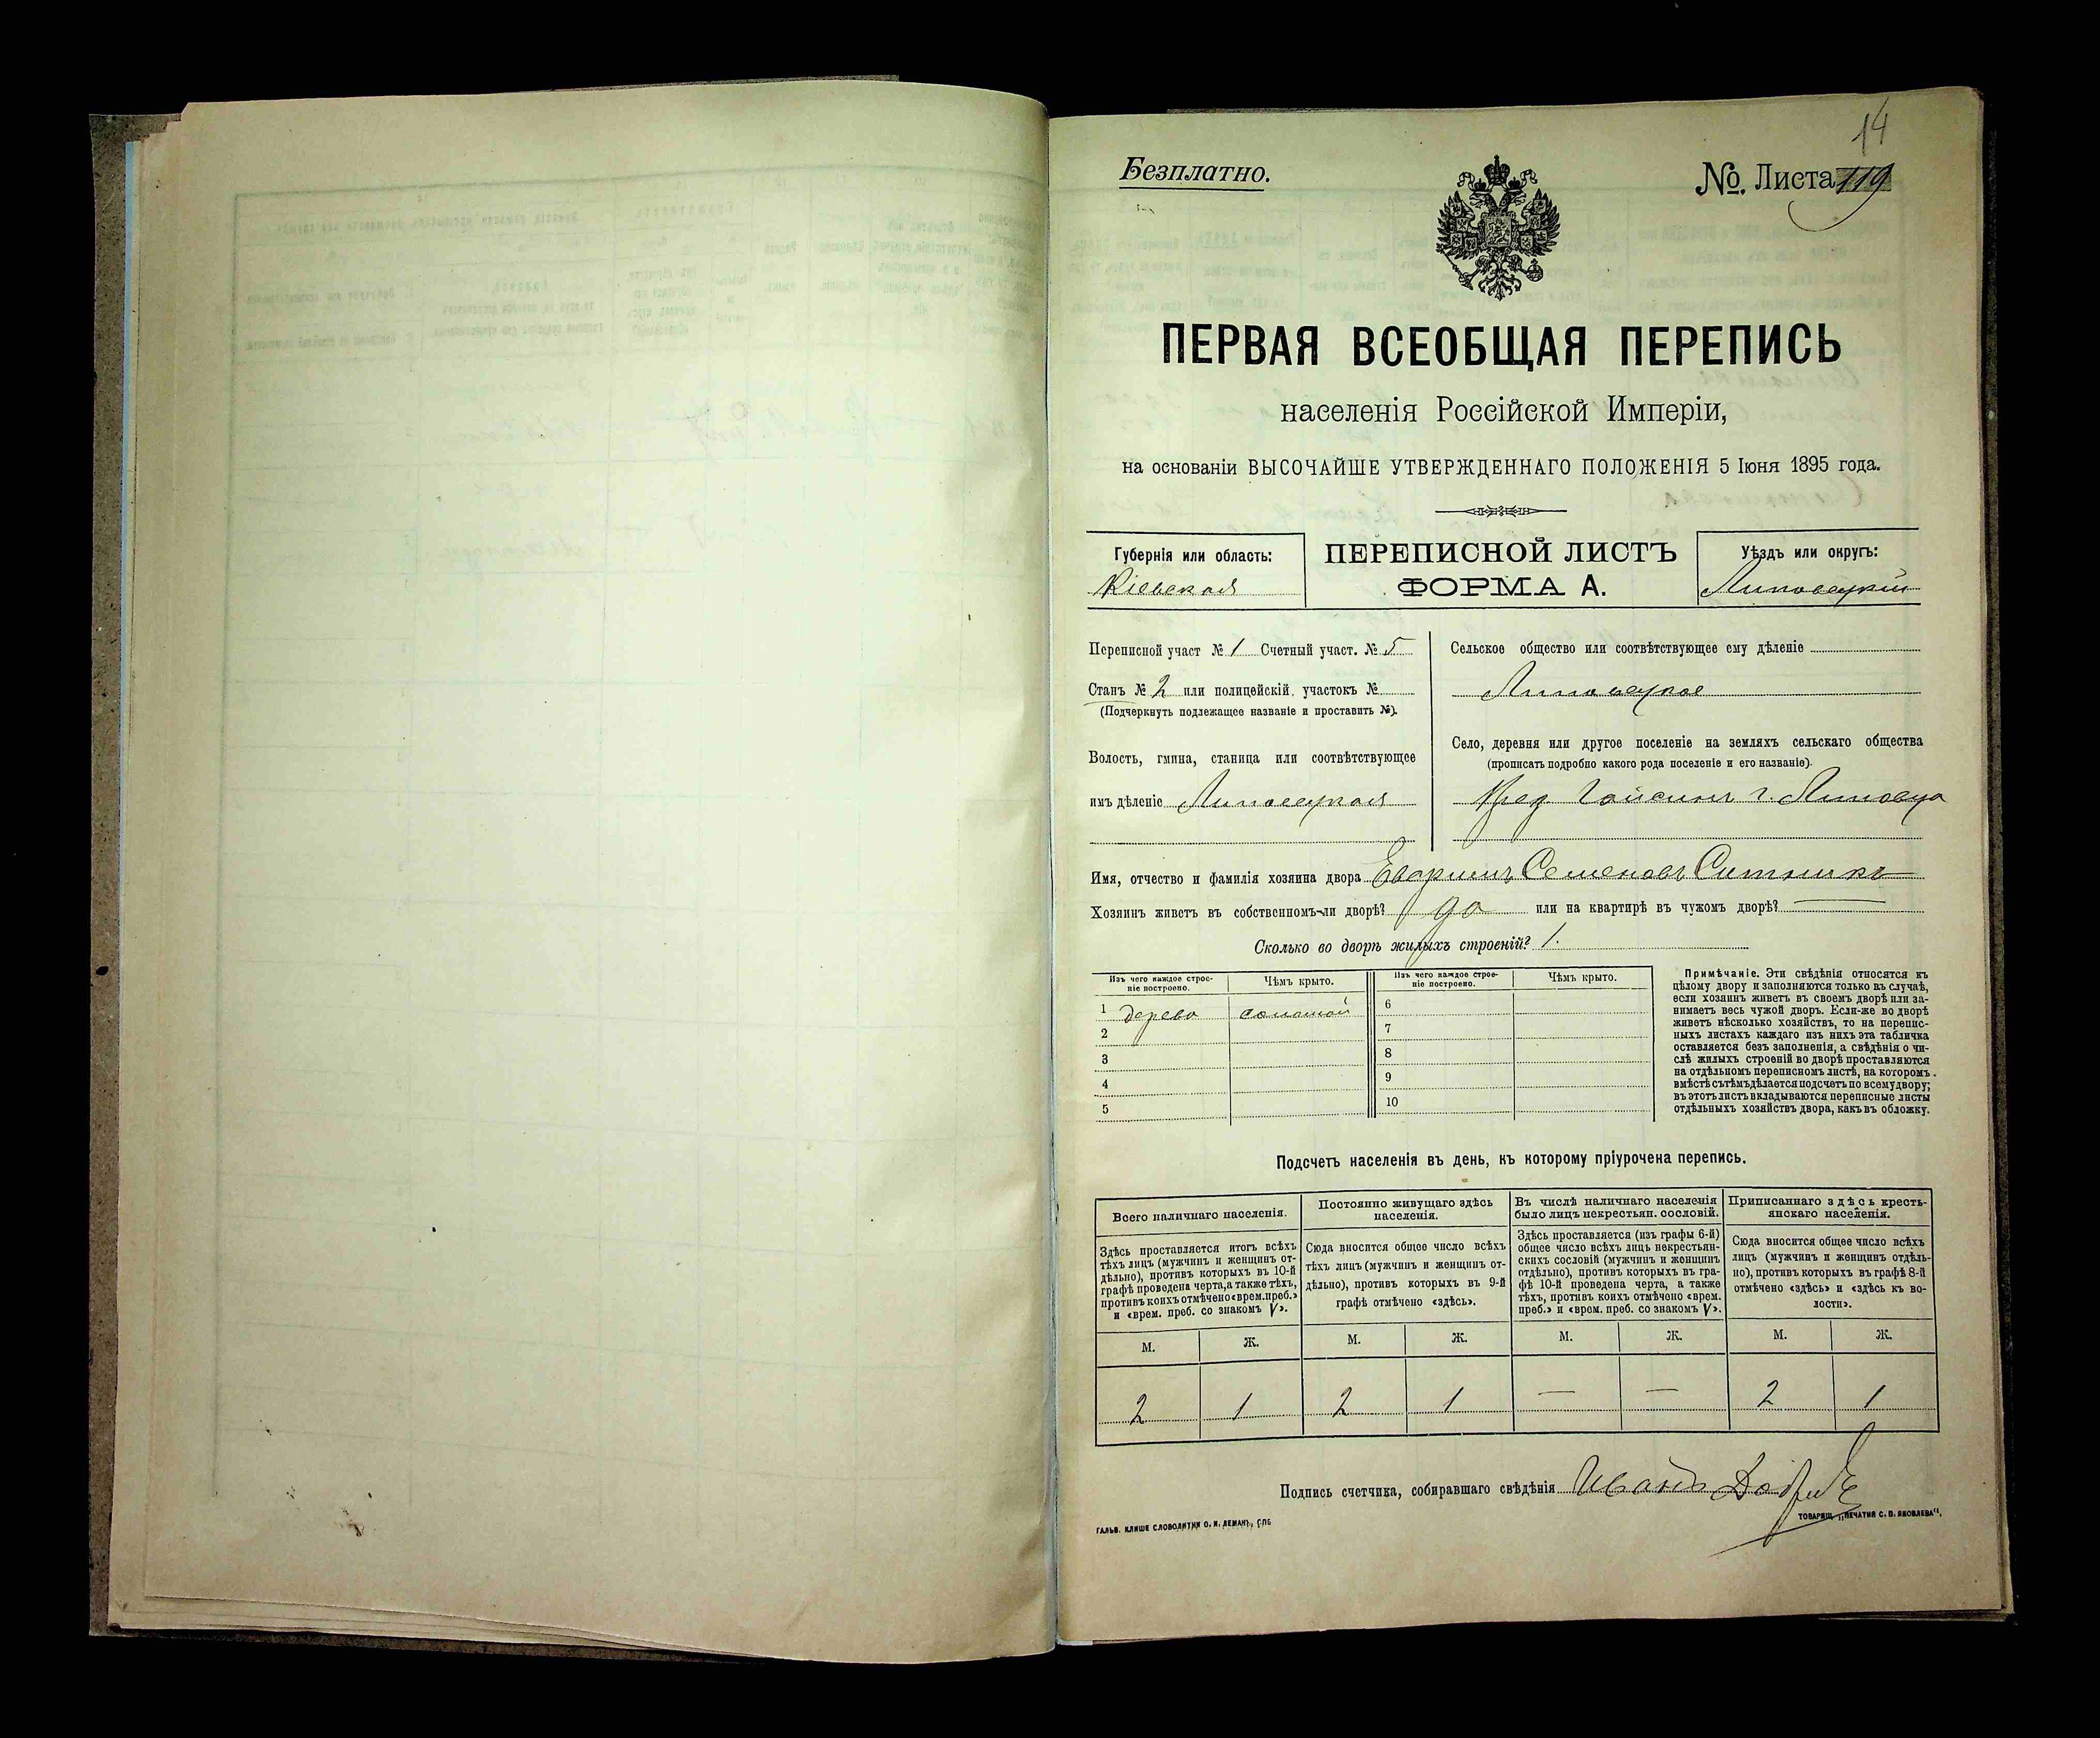 14
Безплатно.
№. Листа 119
ПЕРВАЯ ВСЕОБЩАЯ ПЕРЕПИСЬ
населенія Россійской Имперіи,
на основаніи ВЫСОЧАЙШЕ УТВЕРЖДЕННАГО ПОЛОЖЕНІЯ 5 Іюня 1895 года.
Губернія или область:
Кіевская
ПЕРЕПИСНОЙ ЛИСТЪ
ФОРМА А.
Уѣздъ или округъ:
Липовецкій
Переписной участ № 1 Счетный участ. № 5
Станъ № 2 или полицейскій участокъ №
(Подчеркнуть подлежащее названіе и проставить №).
Волость, гмина, станица или соотвѣтствующее
имъ дѣленіе Липовецкая
Сельское общество или соотвѣтствующее ему дѣленіе
Липовецкое
Село, деревня или другое поселеніе на земляхъ сельскаго общества
(прописать подробно какого рода поселеніе и его названіе).
г. Липовца
Имя, отчество и фамилія хозяина двора Семеновъ Ситникъ
Хозяинъ живетъ въ собственномъ-ли дворѣ? да или на квартирѣ въ чужомъ дворѣ? —
Сколько во дворѣ жилыхъ строеній? 1.
Изъ чего каждое строе-
ніе построено.
Чѣмъ крыто.
Изъ чего каждое строе-
ніе построено.
Чѣмъ крыто.
1 дерево соломой 6
2 7
3 8
4 9
5 10
Примѣчаніе. Эти свѣдѣнія относятся къ
цѣлому двору и заполняются только въ случаѣ,
если хозяинъ живетъ въ своемъ дворѣ или за-
нимаетъ весь чужой дворъ. Если-же во дворѣ
живетъ нѣсколько хозяйствъ, то на перепис-
ныхъ листахъ каждаго изъ нихъ эта табличка
оставляется безъ заполненія, а свѣдѣнія о чи-
слѣ жилыхъ строеній во дворѣ проставляются
на отдѣльномъ переписномъ листѣ, на которомъ
вмѣстѣ съ тѣмъ дѣлается подсчетъ по всему двору;
въ этотъ листъ вкладываются переписные листы
отдѣльныхъ хозяйствъ двора, какъ въ обложку.
Подсчетъ населенія въ день, къ которому пріурочена перепись.
Всего наличнаго населенія.
Здѣсь проставляется итогъ всѣхъ
тѣхъ лицъ (мужчинъ и женщинъ от-
дѣльно), противъ которыхъ въ 10-й
графѣ проведена черта, а также тѣхъ,
противъ коихъ отмѣчено «врем. преб.»
и «врем. преб. со знакомъ V».
Постоянно живущаго здѣсь
населенія.
Сюда вносится общее число всѣхъ
тѣхъ лицъ (мужчинъ и женщинъ от-
дѣльно), противъ которыхъ въ 9-й
графѣ отмѣчено «здѣсь».
Въ числѣ наличнаго населенія
было лицъ некрестьян. сословій.
Здѣсь проставляется (изъ графы 6-й)
общее число всѣхъ лицъ некрестьян-
скихъ сословій (мужчинъ и женщинъ
отдѣльно), противъ которыхъ въ гра-
фѣ 10-й проведена черта, а также
тѣхъ, противъ коихъ отмѣчено «врем.
преб.» и «врем. преб. со знакомъ V».
Приписаннаго здѣсь кресть-
янскаго населенія.
Сюда вносится общее число всѣхъ
лицъ (мужчинъ и женщинъ отдѣль-
но), противъ которыхъ въ графѣ 8-й
отмѣчено «здѣсь» и «здѣсь къ во-
лости».
М. Ж. М. Ж. М. Ж. М. Ж.
2 1 2 1 — — 2 1
Подпись счетчика, собиравшаго свѣдѣнія Иванъ
ГАЛЬВ. КЛИШЕ СЛОВОЛИТНИ О. И. ЛЕМАНЪ, СПБ
ТОВАРИЩ. „ПЕЧАТНЯ С. П. ЯКОВЛЕВА".